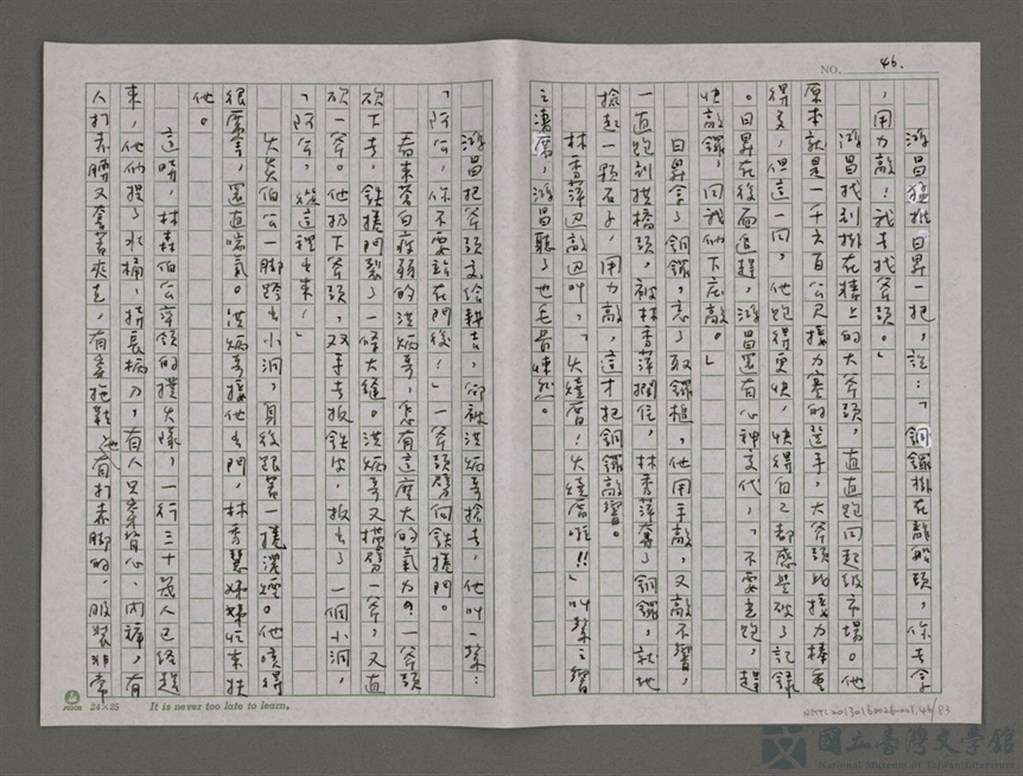 NO. 46.
游昌猛推日昇一把，說：「銅鑼掛在龍船頭，你去拿
，用力敲！我去找斧頭。」
游昌找到掛在樓上的大斧頭，直直跑回超級市場。他
原本就是一千六百公尺接力賽的選手，大斧頭比接力棒重
得多，但這一回，他跑得更快，快得自己都感覺破了記錄
。日昇在後面追趕，游昌還有心神交代，「不要光跑，趕
快敲鑼，回我們下庄敲。」
日昇拿了銅鑼，忘了取鑼槌，他用手敲，又敲不響，
一直跑到拱橋頭，被林秀萍攔住，林秀萍奪了銅鑼，就地
撿起一顆石子，用力敲，這才把銅鑼敲響。
林秀萍邊敲邊叫，「火燒厝！火燒厝啦！！」叫聲之響
之淒厲，游昌聽了也毛骨悚然。
游昌把斧頭交給耕吉，卻被洪炳哥搶去，他叫一聲：
「阿公，你不要站在門後！」一斧頭劈向鐵捲門。
看來蒼白瘦弱的洪炳哥，怎有這麼大的氣力？一斧頭
砍下去，鐵捲門裂了一條大縫。洪炳哥又橫劈一斧，又直
砍一斧。他扔下斧頭，双手去扳鐵皮，扳出了一個小洞，
「阿公，從這裡出來！」
火炎伯公一腳跨出小洞，身後跟著一捲濃煙。他咳得
很厲害，還直喘氣。洪炳哥接他出門，林秀慧姊姊忙來扶
他。
這時，林森伯公率領的撲火隊，一行三十幾人已經趕
來，他們提了水桶、持長柄刀，有人只穿背心、內褲，有
人打赤膊又套著夾克，有穿拖鞋也有打赤腳的，服裝非常
24×25
It is never too late to learn.
NMTL20130160026-001.46/83
國立臺灣文學館
National Museum of Taiwan Literature